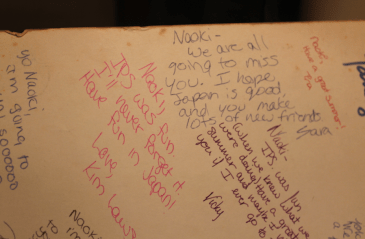 Naoki-
We are all
going to miss
you. I hope
Japan is good,
and you make
lots of new friends.
Sara
Naoki,
Have a good summer!
Naoky,
IPS was fun.
I'll never forget it
Have fun in Japan!
Love,
Kim
yo Naoki,
am going to
Naoki-
IPS was fun
(when we knew what we
were doing) Have a great
summer and maybe I
you if I ever go to
Vicky
Naoki